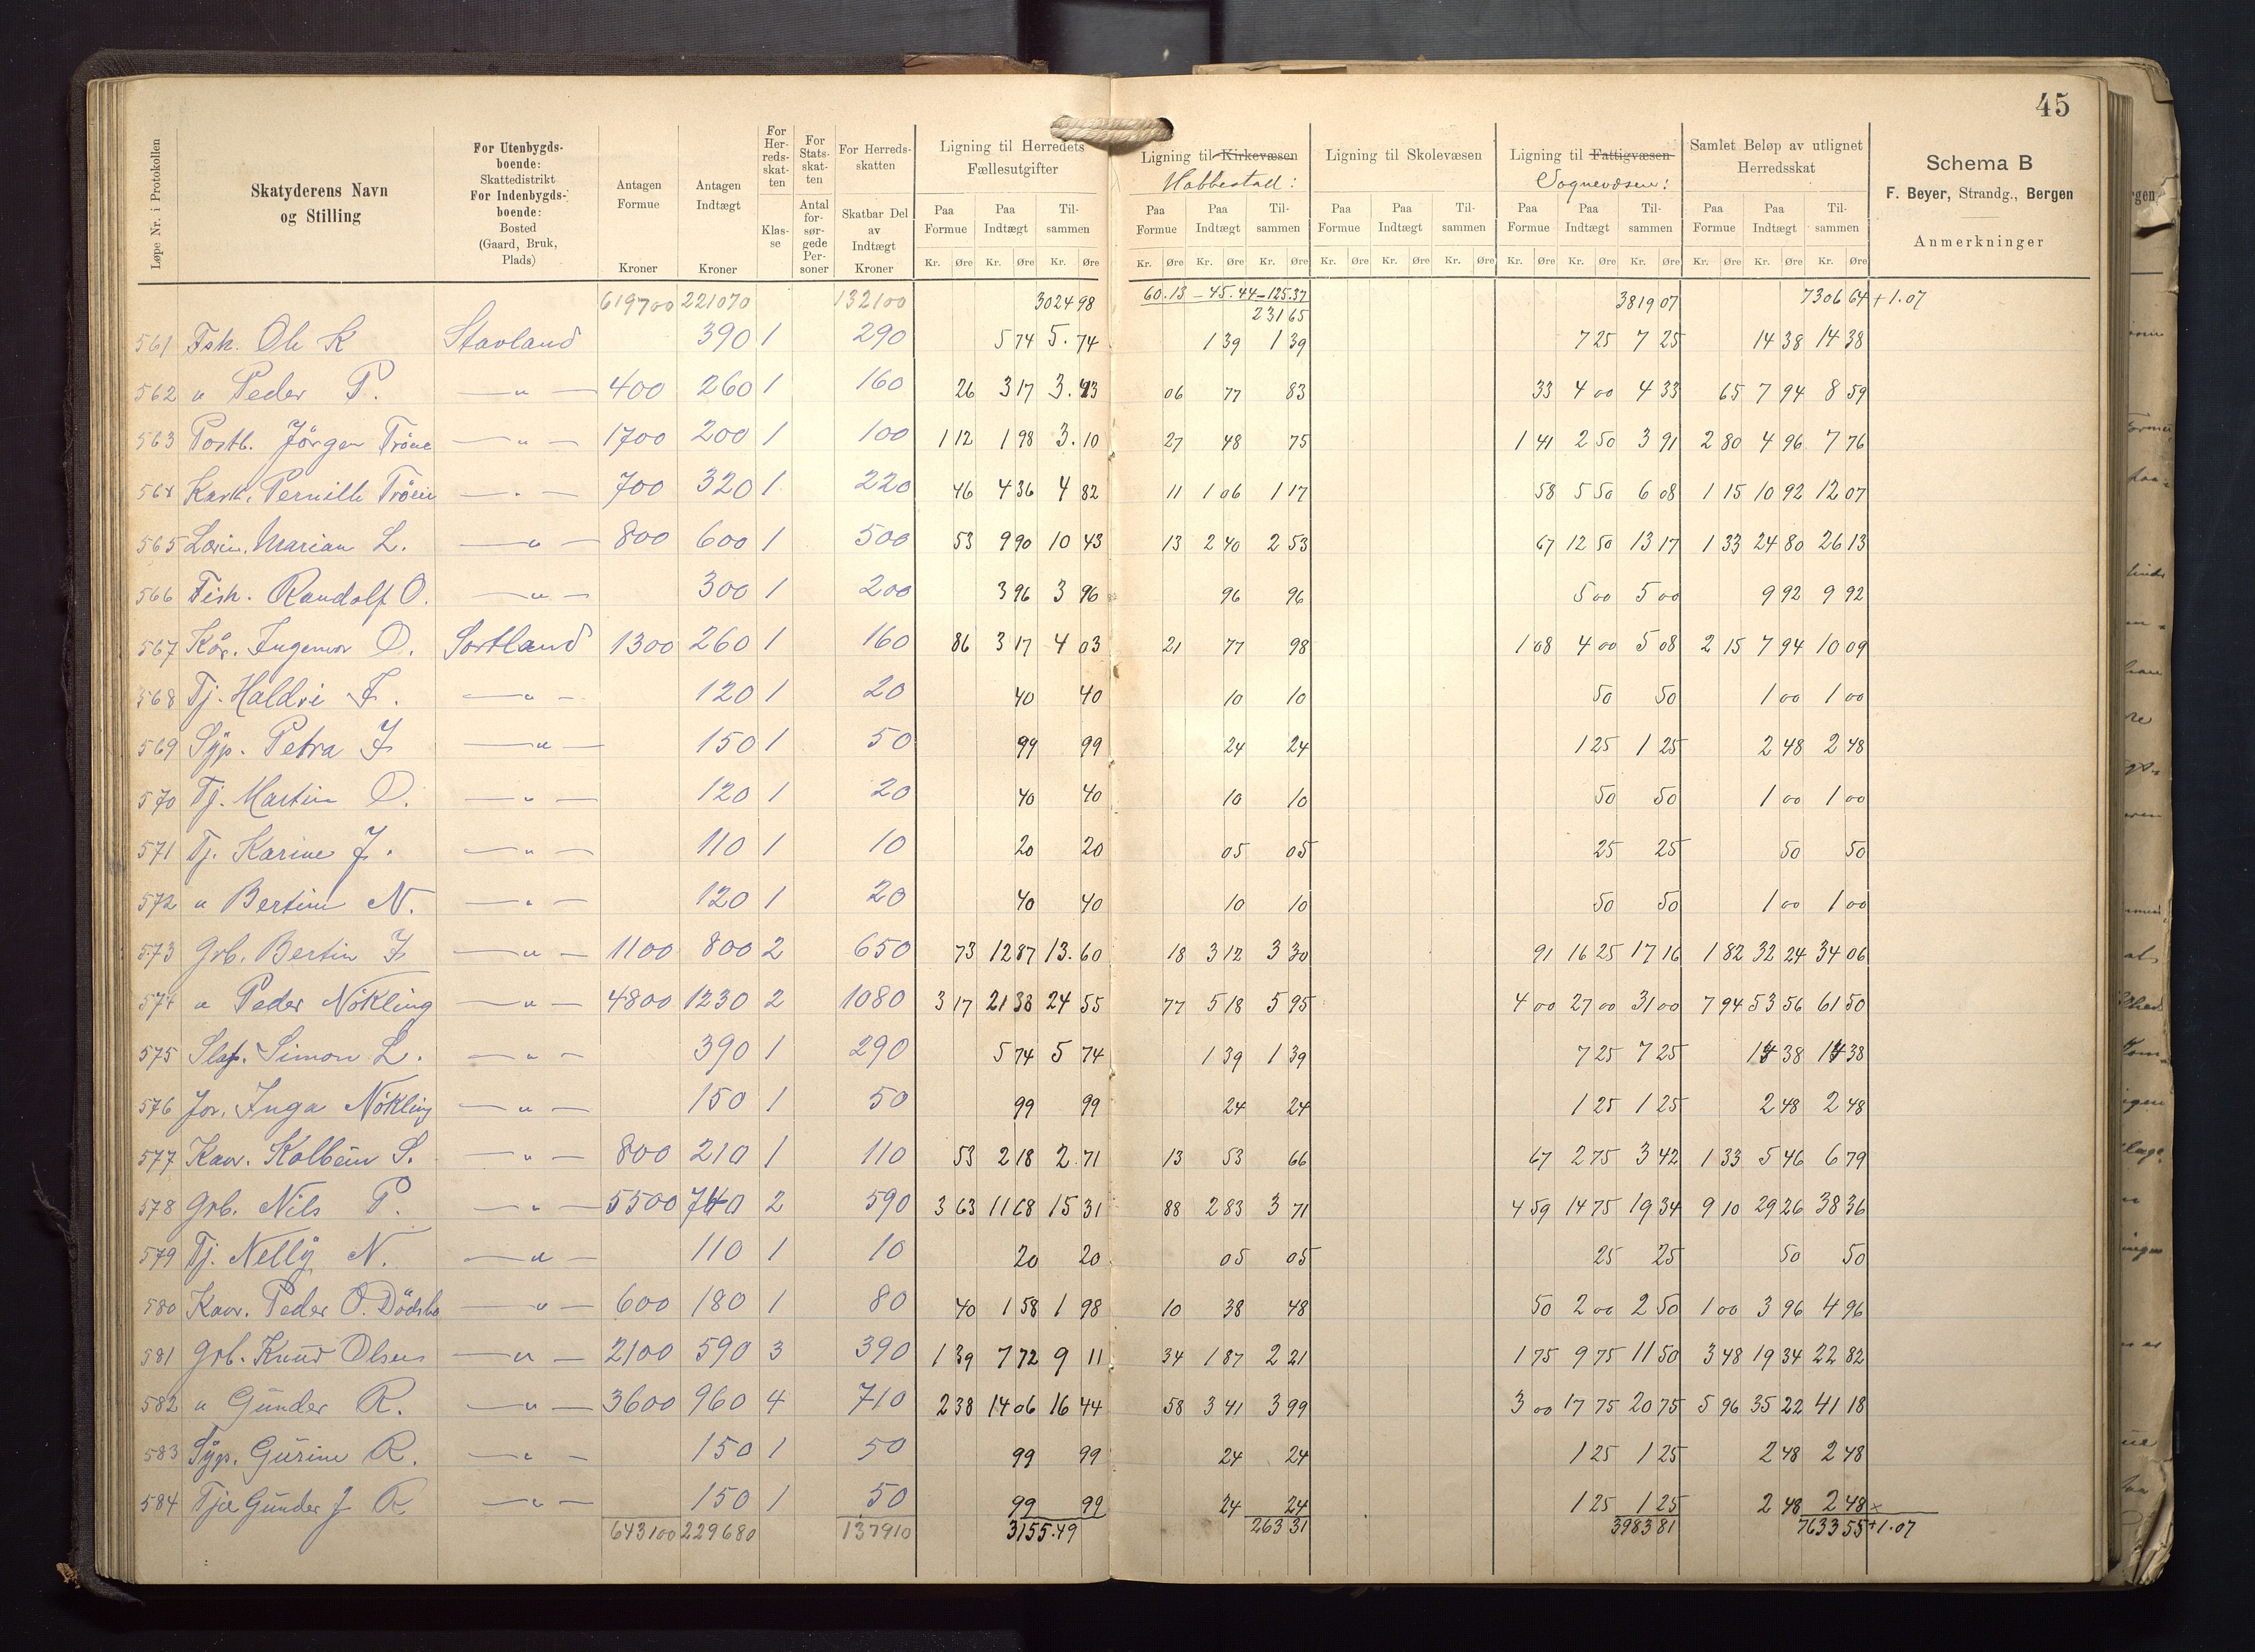 45
Løpe Nr. i Protokollen
Skatyderens Navn og Stilling
For Utenbygds-boende: Skattedistrikt For Indenbygds-boende: Bosted (Gaard, Bruk, Plads)
Antagen Formue Kroner
Antagen Indtægt Kroner
For Herreds-skatten Klas-se
For Stats-skat-ten Antal for-sør-gede Per-soner
For Herreds-skatten Skatbar Del av Indtægt Kroner
Ligning til Herredets Fællesutgifter
Ligning til Kirkevæsen
Habbestad:
Ligning til Skolevæsen
Ligning til Fattigvæsen
Sognevæsen:
Samlet Beløp av utlignet Herredsskat
Schema B
F. Beyer, Strandg., Bergen
Anmerkninger
Paa Formue Paa Indtægt Til-sammen Paa Formue Paa Indtægt Til-sammen Paa Formue Paa Indtægt Til-sammen Paa Formue Paa Indtægt Til-sammen Paa Formue Paa Indtægt Til-sammen
Kr. Øre Kr. Øre Kr. Øre Kr. Øre Kr. Øre Kr. Øre Kr. Øre Kr. Øre Kr. Øre Kr. Øre Kr. Øre Kr. Øre Kr. Øre Kr. Øre Kr. Øre
619700 221070 132100 3024 98 60.13 – 45.44 – 125.37 3819 07 7306 64 + 1.07
231 65
561 Fsk. Ole K Stavland 390 1 290 5 74 5. 74 1 39 1 39 7 25 7 25 14 38 14 38
562 " Peder P. — " — 400 260 1 160 26 3 17 3. 43 06 77 83 33 4 00 4 33 65 7 94 8 59
563 Postb. Jörgen Tröne — " — 1700 200 1 100 1 12 1 98 3. 10 27 48 75 1 41 2 50 3 91 2 80 4 96 7 76
564 Pernille — " — 700 320 1 220 46 4 36 4 82 11 1 06 1 17 58 5 50 6 08 1 15 10 92 12 07
565 Marian L. — " — 800 600 1 500 53 9 90 10 43 13 2 40 2 53 67 12 50 13 17 1 33 24 80 26 13
566 Fisk. Randolf O. — " — 300 1 200 3 96 3 96 96 96 5 00 5 00 9 92 9 92
567 Kår. Ingemor O. Sortland 1300 260 1 160 86 3 17 4 03 21 77 98 1 08 4 00 5 08 2 15 7 94 10 09
568 Tj. Haldri F. — " — 120 1 20 40 40 10 10 50 50 1 00 1 00
569 Syp. Petra J — " — 150 1 50 99 99 24 24 1 25 1 25 2 48 2 48
570 Tj. Martin O. — " — 120 1 20 40 40 10 10 50 50 1 00 1 00
571 Tj. Karine J. — " — 110 1 10 20 20 05 05 25 25 50 50
572 " Bertine N. — " — 120 1 20 40 40 10 10 50 50 1 00 1 00
573 Grb. Bertin J — " — 1100 800 2 650 73 12 87 13. 60 18 3 12 3 30 91 16 25 17 16 1 82 32 24 34 06
574 " Peder Nökling — " — 4800 1230 2 1080 3 17 21 38 24 55 77 5 18 5 95 4 00 27 00 31 00 7 94 53 56 61 50
575 Simon L. — " — 390 1 290 5 74 5 74 1 39 1 39 7 25 7 25 14 38 14 38
576 Jor. Inga Nökling — " — 150 1 50 99 99 24 24 1 25 1 25 2 48 2 48
577 Kaar. Kolbein S. — " — 800 210 1 110 53 2 18 2. 71 13 53 66 67 2 75 3 42 1 33 5 46 6 79
578 Grb. Nils P. — " — 5500 740 2 590 3 63 11 68 15 31 88 2 83 3 71 4 59 14 75 19 34 9 10 29 26 38 36
579 Tj. Nelly N. — " — 110 1 10 20 20 05 05 25 25 50 50
580 Kaar. Peder O. Dödsbo — " — 600 180 1 80 40 1 58 1 98 10 38 48 50 2 00 2 50 1 00 3 96 4 96
581 Grb. Knud Olsen — " — 2100 590 3 390 1 39 7 72 9 11 34 1 87 2 21 1 75 9 75 11 50 3 48 19 34 22 82
582 " Gunder R. — " — 3600 960 4 710 2 38 14 06 16 44 58 3 41 3 99 3 00 17 75 20 75 5 96 35 22 41 18
583 Syp. Gurine R. — " — 150 1 50 99 99 24 24 1 25 1 25 2 48 2 48
584 Tje Gunder J R — " — 150 1 50 99 99 24 24 1 25 1 25 2 48 2 48 ×
643100 229680 137910 3155.49 263 31 3983 81 7633 55 + 1.07